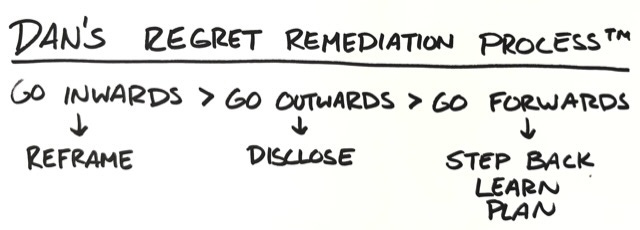 DAN'S REGRET REMEDIATION PROCESS™
GO INWARDS > GO OUTWARDS > GO FORWARDS
↓ ↓ ↓
REFRAME DISCLOSE STEP BACK
LEARN
PLAN